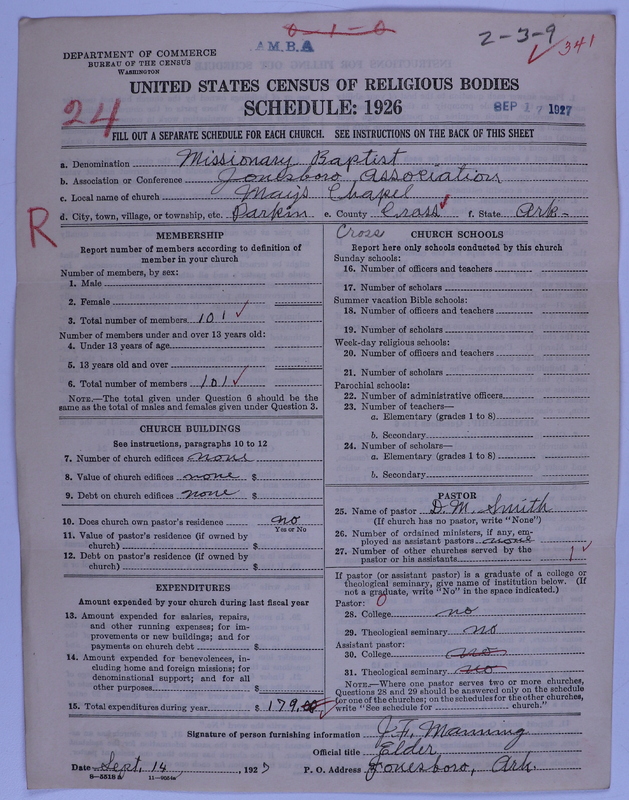 0-1-0
A.M.B.A
2-3-9
341
DEPARTMENT OF COMMERCE
BUREAU OF THE CENSUS
WASHINGTON
UNITED STATES CENSUS OF RELIGIOUS BODIES
SCHEDULE: 1926
24
SEP 17 1927
FILL OUT A SEPARATE SCHEDULE FOR EACH CHURCH. SEE INSTRUCTIONS ON THE BACK OF THIS SHEET
a. Denomination Missionary Baptist
b. Association or Conference Jonesboro Association
c. Local name of church Mays Chapel
d. City, town, village, or township, etc. Parkin e. County Cross f. State Ark-
R
Cross
MEMBERSHIP
Report number of members according to definition of
member in your church
Number of members, by sex:
1. Male
2. Female
3. Total number of members 101
Number of members under and over 13 years old:
4. Under 13 years of age
5. 13 years old and over
6. Total number of members 101
NOTE.—The total given under Question 6 should be the
same as the total of males and females given under Question 3.
CHURCH BUILDINGS
See instructions, paragraphs 10 to 12
7. Number of church edifices none
8. Value of church edifices none $
9. Debt on church edifices none $
10. Does church own pastor's residence no
Yes or No
11. Value of pastor's residence (if owned by
church) $
12. Debt on pastor's residence (if owned by
church) $
EXPENDITURES
Amount expended by your church during last fiscal year
13. Amount expended for salaries, repairs,
and other running expenses; for im-
provements or new buildings; and for
payments on church debt $
14. Amount expended for benevolences, in-
cluding home and foreign missions; for
denominational support; and for all
other purposes $
15. Total expenditures during year $ 179.00
CHURCH SCHOOLS
Report here only schools conducted by this church
Sunday schools:
16. Number of officers and teachers
17. Number of scholars
Summer vacation Bible schools:
18. Number of officers and teachers
19. Number of scholars
Week-day religious schools:
20. Number of officers and teachers
21. Number of scholars
Parochial schools:
22. Number of administrative officers
23. Number of teachers—
a. Elementary (grades 1 to 8)
b. Secondary
24. Number of scholars—
a. Elementary (grades 1 to 8)
b. Secondary
PASTOR
25. Name of pastor D. M. Smith
(If church has no pastor, write "None")
26. Number of ordained ministers, if any, em-
ployed as assistant pastors none
27. Number of other churches served by the
pastor or his assistants 1
If pastor (or assistant pastor) is a graduate of a college or
theological seminary, give name of institution below. (If
not a graduate, write "No" in the space indicated.)
Pastor: 0
28. College no
29. Theological seminary no
Assistant pastor:
30. College no
31. Theological seminary no
NOTE.—Where one pastor serves two or more churches,
Questions 28 and 29 should be answered only on the schedule
for one of the churches; on the schedules for the other churches,
write "See schedule for church."
Signature of person furnishing information J. F. Manning
Official title Elder
Date Sept. 14, 1927 P. O. Address Jonesboro, Ark.
8-5518 A 11-9054a